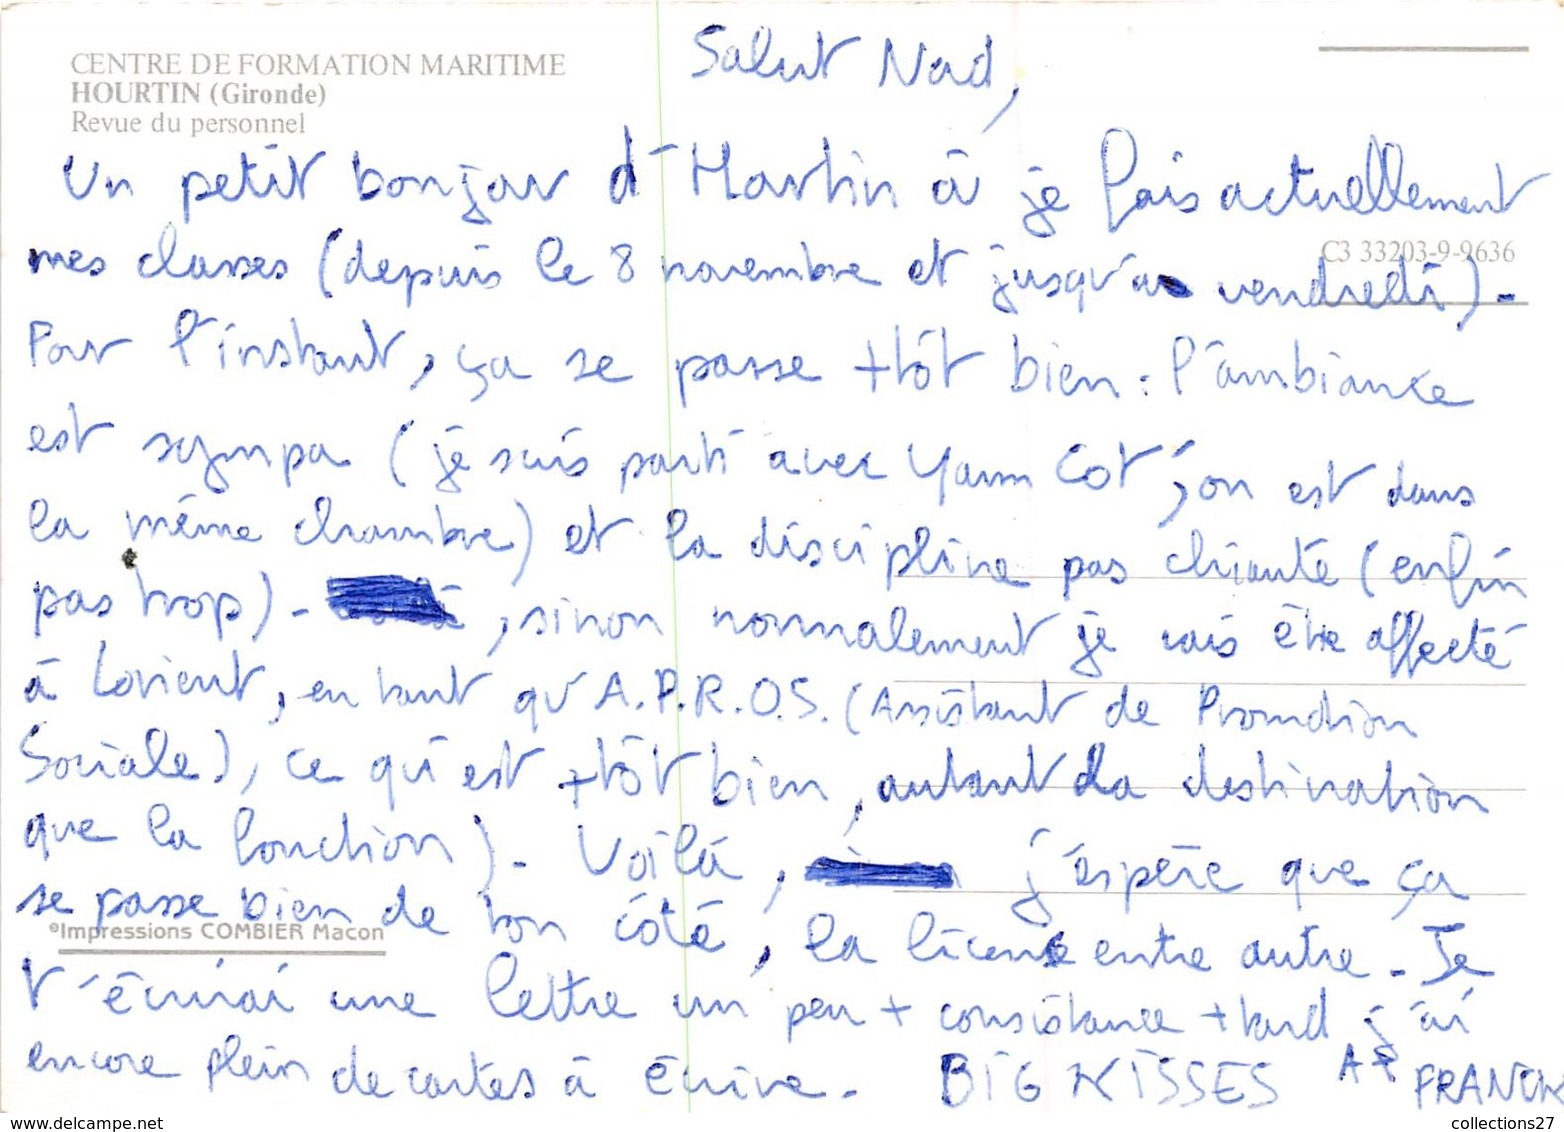 CENTRE DE FORMATION MARITIME
HOURTIN (Gironde)
Revue du personnel
C3 33203-9-9636
Salut Nad,
Un petit bonjour d'Hourtin où je fais actuellement
mes classes (depuis le 8 novembre et jusqu'à vendredi).
Pour l'instant, ça se passe +tôt bien : l'ambiance
est sympa (je suis parti avec Yann Cot', on est dans
la même chambre) et la discipline pas chiante (enfin
pas trop). , sinon normalement je vais être affecté
à Lorient, en tant qu'A.P.R.O.S. (Assistant de Promotion
Sociale), ce qui est +tôt bien, autant la destination
que la fonction). Voilà, j'espère que ça
se passe bien de ton côté, la licence entre autre. Je
t'écrirai une lettre un peu + consistance + tard j'ai
encore plein de cartes à écrire. BIG KISSES A+ FRANCK
©Impressions COMBIER Macon
www.delcampe.net
collections27